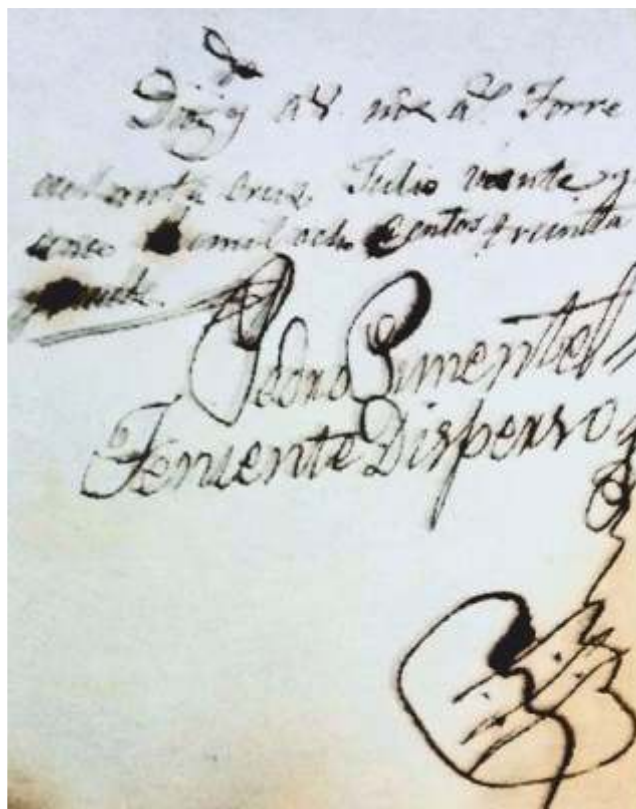 Dios g̃ á V. m̃s a.s Torre
de Santa Cruz Julio viente y
cinco mil ocho Centos treintta
Pedro Pimentel
Teniente Disperso